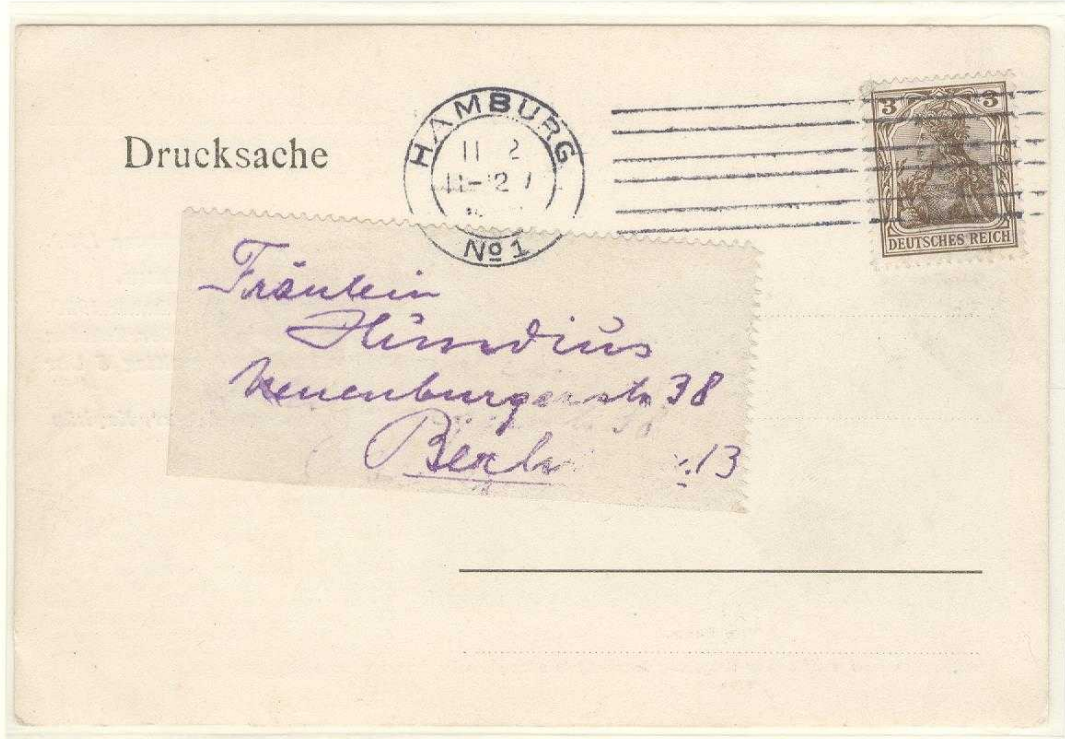 Drucksache
HAMBURG
11 2
11-12
No 1
3 3
DEUTSCHES REICH
Fräulein
Neuenburgerstr 38
Berlin 13